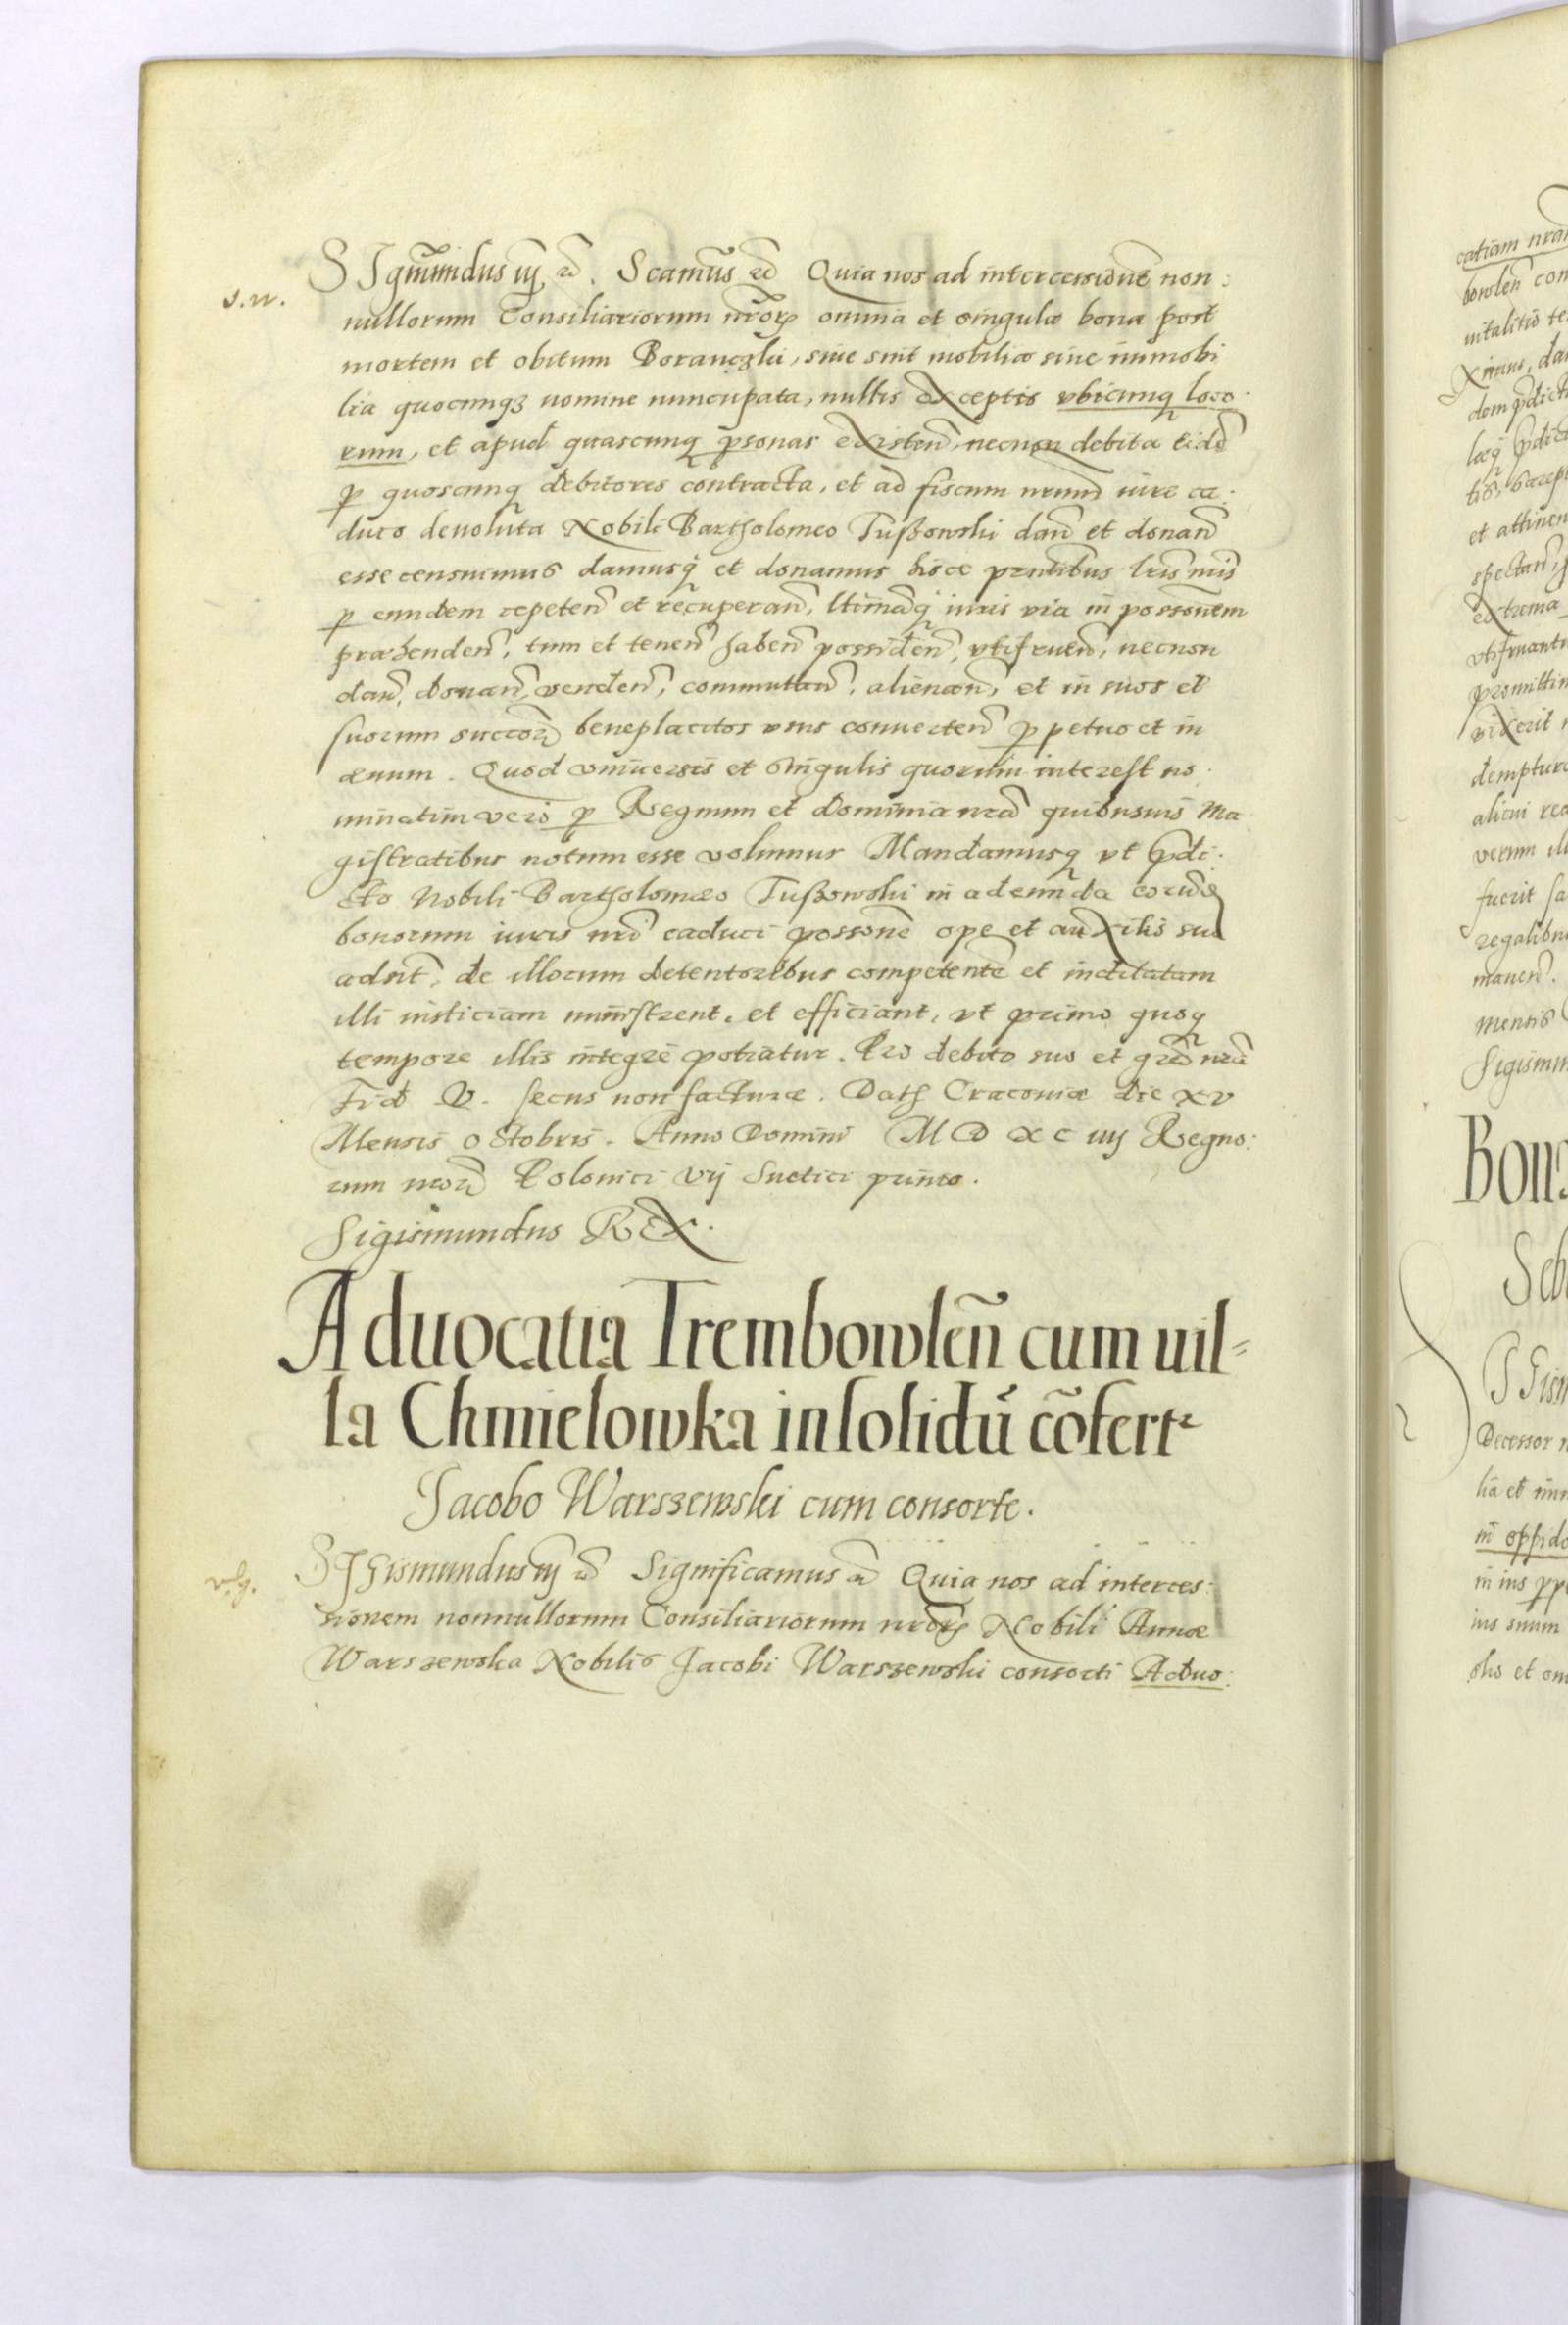 SIgm̃undus iij etc̃. Scamũs etc̃ Quia nos ad intercessionẽ non:
s. w.
nullorum Consiliariorum nr̃oꝝ omnia et singula bona post
mortem et obitum Boranczki, siue sint mobilia siue immobi
lia quocunqꝫ nomine nuncupata, nullis exceptis vbicunqꝫ loco
rum, et apud quascunqꝫ ꝑsonas existeñ, necnon debita eidẽ
ꝑ quoscunqꝫ debitores contracta, et ad fiscum nrum̃ iure ca:
duco deuoluta Nobili Bartholomeo Tußowski dañ et donañ
esse censuimus damusqꝫ et donamus hisce prntĩbus lrĩs nrĩs
ꝑ eundem repeteñ et recuperañ, ltimãqꝫ iuris via in possonẽm
præhendeñ, tum et teneñ habeñ possideñ, vtifrueñ, necnon
dañ, donañ, vendeñ, commutañ, alienañ, et in suos et
suorum succorũ beneplacitos vsus conuerteñ ꝑpetuo et in
æuum. Quod vniuersis et singulis quorum interest no
minatim vero ꝑ Regnum et Dominia nrã quibusuis Ma
gistratibus notum esse volumus Mandamusqꝫ vt prædi:
cto Nobili Bartholomæo Tußowski in adeunda eorundẽ
bonorum iuris nrĩ caduci possonẽ ope et auxiliis suis
adsiñt, de illorum detentoribus competentẽ et indilatam
illi iusticiam ministrent, et efficiant, vt primo quoqꝫ
tempore illis integre potiatur. Pro debito suo et grã nrã
Frid V. secus non facturæ. Dat̃ Cracouiæ die xv
Mensis Octobris. Anno Domini M D XC iiij Regno:
rum nrorũ Polonici vij Suetici primo.
Sigismundus Rex.
Aduocatia Trembowleñ cum uil=
la Chmielowka in solidũ cõfert²
Jacobo Warszewski cum consorte.
SIGismundus iij etc̃ Significamus etc̃ Quia nos ad interces:
sionem nonnullorum Consiliariorum nrorꝝ Nobili Annæ
Warszewska Nobilis Jacobi Warszewski consorti Aduo:
catiam nrãm
bowleñ con
uitalitio te
ximus, da
dem prædict
et attinen
spectañ, p
extrema
vtifruantu
promittim
vixerit n
dempturo
alicui rea
verum ill
fuerit sa
regalibus
maneñ.
Mentis
Sigismun
Bona
Seb
SIGism
Decessor n
lia et imm
in oppido
in ius ꝑpe
ius suum
slis et om